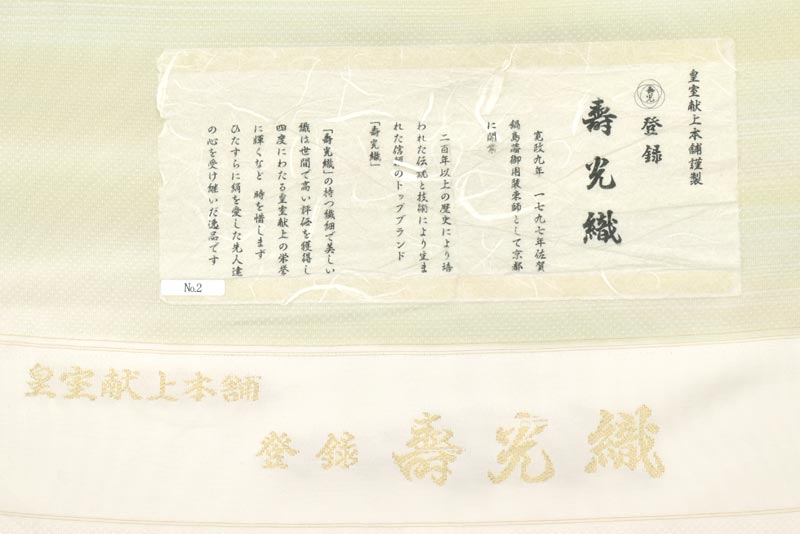 皇室献上本舗謹製
壽光
登録
壽光織
寛政九年 一七九七年佐賀
鍋島藩御用装束師として京都
に開業
二百年以上の歴史により培
われた伝統と技術により生ま
れた信頼のトップブランド
「壽光織」
「壽光織」の持つ繊細で美しい
織は世間で高い評価を獲得し
四度にわたる皇室献上の栄誉
に輝くなど 時を惜しまず
ひたすらに絹を愛した先人達
の心を受け継いだ逸品です
No.2
皇室献上本舗
登録 壽光織